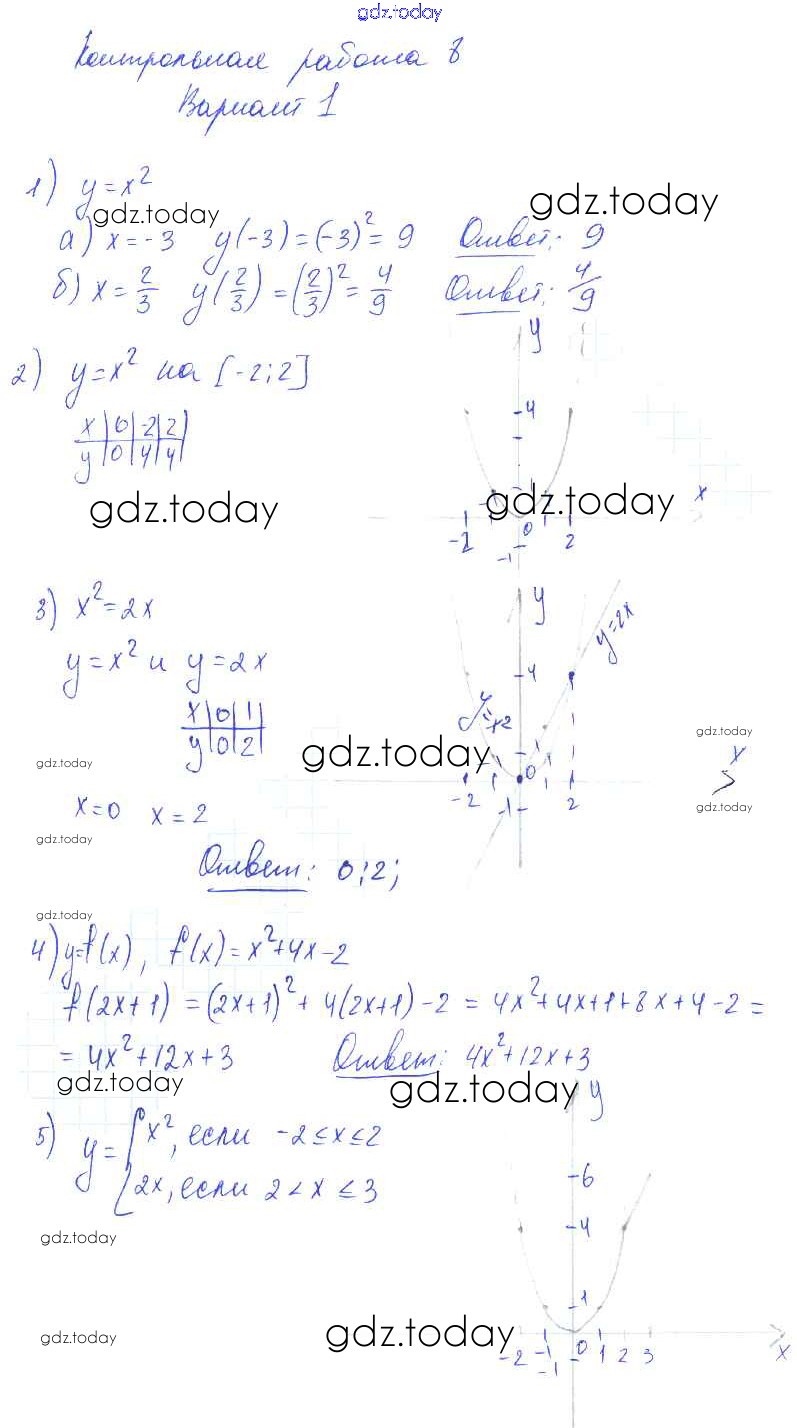 gdz.today
Контрольная работа 8
Вариант 1
1) y=x²
gdz.today gdz.today
а) x=-3 y(-3)=(-3)²=9 Ответ: 9
б) x=2/3 y(2/3)=(2/3)²=4/9 Ответ: 4/9
2) y=x² на [-2;2]
x|0|-2|2|
y|0|4|4|
y
4
1
gdz.today gdz.today x
-2 0 2
-1
3) x²=2x
y=x² и y=2x
x|0|1|
y|0|2|
y
y=2x
4
y=x²
1
gdz.today gdz.today gdz.today x
-2 0 1 2
-1
gdz.today
x=0 x=2
gdz.today
Ответ: 0;2;
gdz.today
4) y=f(x), f(x)=x²+4x-2
f(2x+1)=(2x+1)²+4(2x+1)-2=4x²+4x+1+8x+4-2=
=4x²+12x+3 Ответ: 4x²+12x+3
gdz.today gdz.today
5) y={x², если -2≤x≤2
2x, если 2<x≤3
y
6
4
1
gdz.today
gdz.today gdz.today
-2 -1 0 1 2 3 x
-1